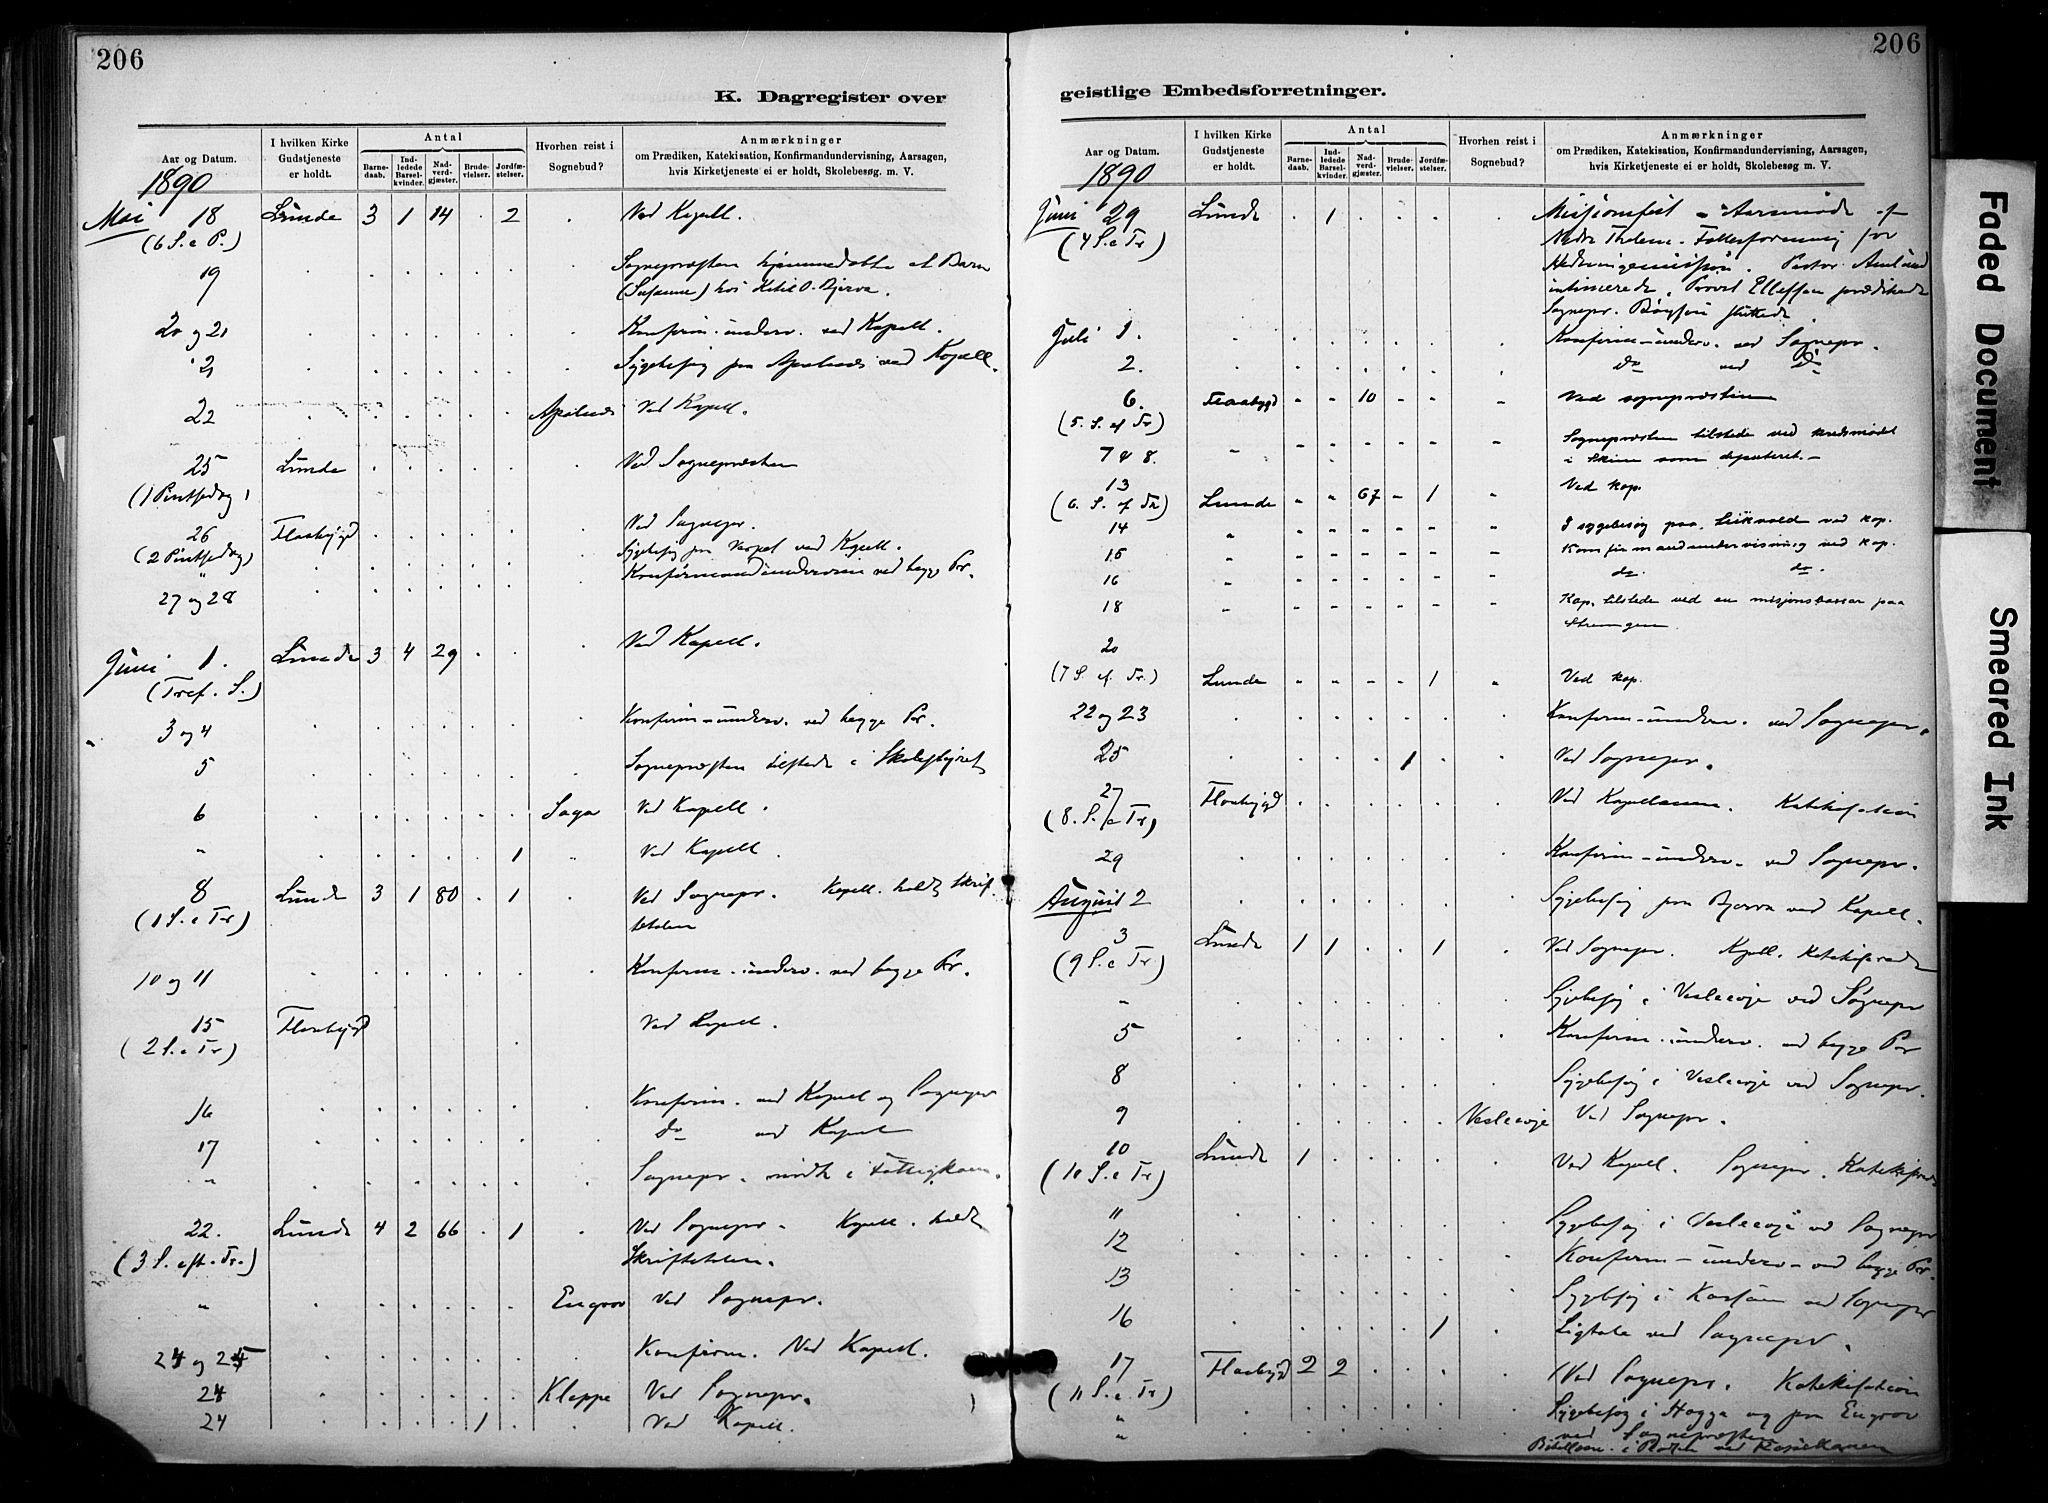 206
K. Dagregister over
Aar og Datum.
I hvilken Kirke Gudstjeneste er holdt.
Antal
Barne-daab.
Ind-ledede Barsel-kvinder.
Nad-verd-gjæster.
Brude-vielser.
Jordfæ-stelser.
Hvorhen reist i Sognebud?
Anmærkninger
om Prædiken, Katekisation, Konfirmandundervisning, Aarsagen,
hvis Kirketjeneste ei er holdt, Skolebesøg. m. V.
1890
Mai 18 Lunde 3 1 14 . 2 . Ved Kapell.
(6 S. e P.)
19 Sognepræsten hjemmedøbte et Barn
(Susanne) hos Ketil O. Bjerva.
20 og 21 Konfirm.-underv. ved Kapell.
21 Sygebesøg paa Apalnæs ved Kapell.
22 Apalnæs Ved Kapell.
25 Lunde Ved Sognepræsten
(1 Pintsedag)
26 Flaabygd Ved Sognepr.
(2 Pintsedag) Sygebesøg paa ved Kapell.
27 og 28 Konfirmandundervisn ved begge Pr.
Juni 1. Lunde 3 4 29 . . . Ved Kapell.
(Tref. S.)
3 og 4 Konfirm-underv. ved begge Pr.
5 Sognepræsten tilstede i Skolestyret
6 Saga Ved Kapell.
" 1 " Ved Kapell.
8 Lunde 3 1 80 . 1 . Ved Sognepr. Kapell. holdt Skrif-
(1 S. e Tr) tetalen
10 og 11 Konfirm.-underv. ved begge Pr.
15 Flaabygd Ved Kapell.
(2 S. e Tr)
16 Konfirm. ved Kapell og Sognepr
17 do ved Kapell
" Sognepr. mødte i Fattigkom.
22. Lunde 4 2 66 . 1 . Ved Sognepr. Kapell. holdt
(3 S. eft. Tr.) Skriftetalen.
" Engrav Ved Sognepr.
24 og 25 Konfirm. Ved Kapell.
24 Kleppe Ved Sognepr.
24 1 Ved Kapell.
206
geistlige Embedsforretninger.
Aar og Datum.
I hvilken Kirke Gudstjeneste er holdt.
Antal
Barne-daab.
Ind-ledede Barsel-kvinder.
Nad-verd-gjæster.
Brude-vielser.
Jordfæ-stelser.
Hvorhen reist i Sognebud?
Anmærkninger
om Prædiken, Katekisation, Konfirmandundervisning, Aarsagen,
hvis Kirketjeneste ei er holdt, Skolebesøg. m. V.
1890
Juni 29 Lunde . 1 . . . . Missionsfest - Aarsmøde af
(4 S. e Tr) Nedre Thelem. Fællesforening for
Hedningemission. Pastor
intimerede. Provst Ellefsen prædikede
Sognepr. sluttede
Juli 1. Konfirm-underv. ved Sognepr.
2. do ved do
6. Flaabygd - - 10 - - - Ved sognepræsten
(5. S. ef Tr)
7 & 8. Sognepræsten tilstede ved kredsmødet
i Skien som deputeret. -
13 Ved kap.
(6. S. ef Tr) Lunde - - 67 - 1 -
14 I sygebesøg paa Leikvold ved kap.
15 Konfirmandundervisning ved kap.
16 do. do.
18 Kap. tilstede ved en misjonsbassar paa
Strengen
20
(7 S. ef. Tr.) Lunde - - - - 1 - Ved kap.
22 og 23 Konfirm-underv. ved Sognepr.
25 1 Ved Sognepr.
27 Flaabygd Ved Kapellanen. Katekisation
(8. S. e Tr)
29 Konfirm-underv. ved Sognepr.
August 2 Sygebesøg paa Bjerva ved Kapell.
3 Lunde 1 1 . . 1 . Ved Sognepr. Kapell. Katekiserede
(9 S. e Tr)
" Sygebesøg i Vesleøje ved Sognepr
5 Konfirm-underv. ved begge Pr
8 Sygebesøg i Vesleøje ved Sognepr.
9 Vesleøje Ved Sognepr.
10 Lunde 1 . . . . . Ved Kapell. Sognepr. Katekiserede
(10 S. e Tr)
11 Sygebesøg i Vesleøje ved Sognepr
12 Konfirm-underv. ved begge Pr.
13 Sygebesøg i ved Sognepr
16 1 Ligtale ved Sognepr.
17 Flaabygd 2 2 . . . . Ved Sognepr. Katekisation
(11 S. e Tr)
" Sygebesøg i Hogga og paa Engrav
ved Sognepræsten
Faded Document
Smeared Ink